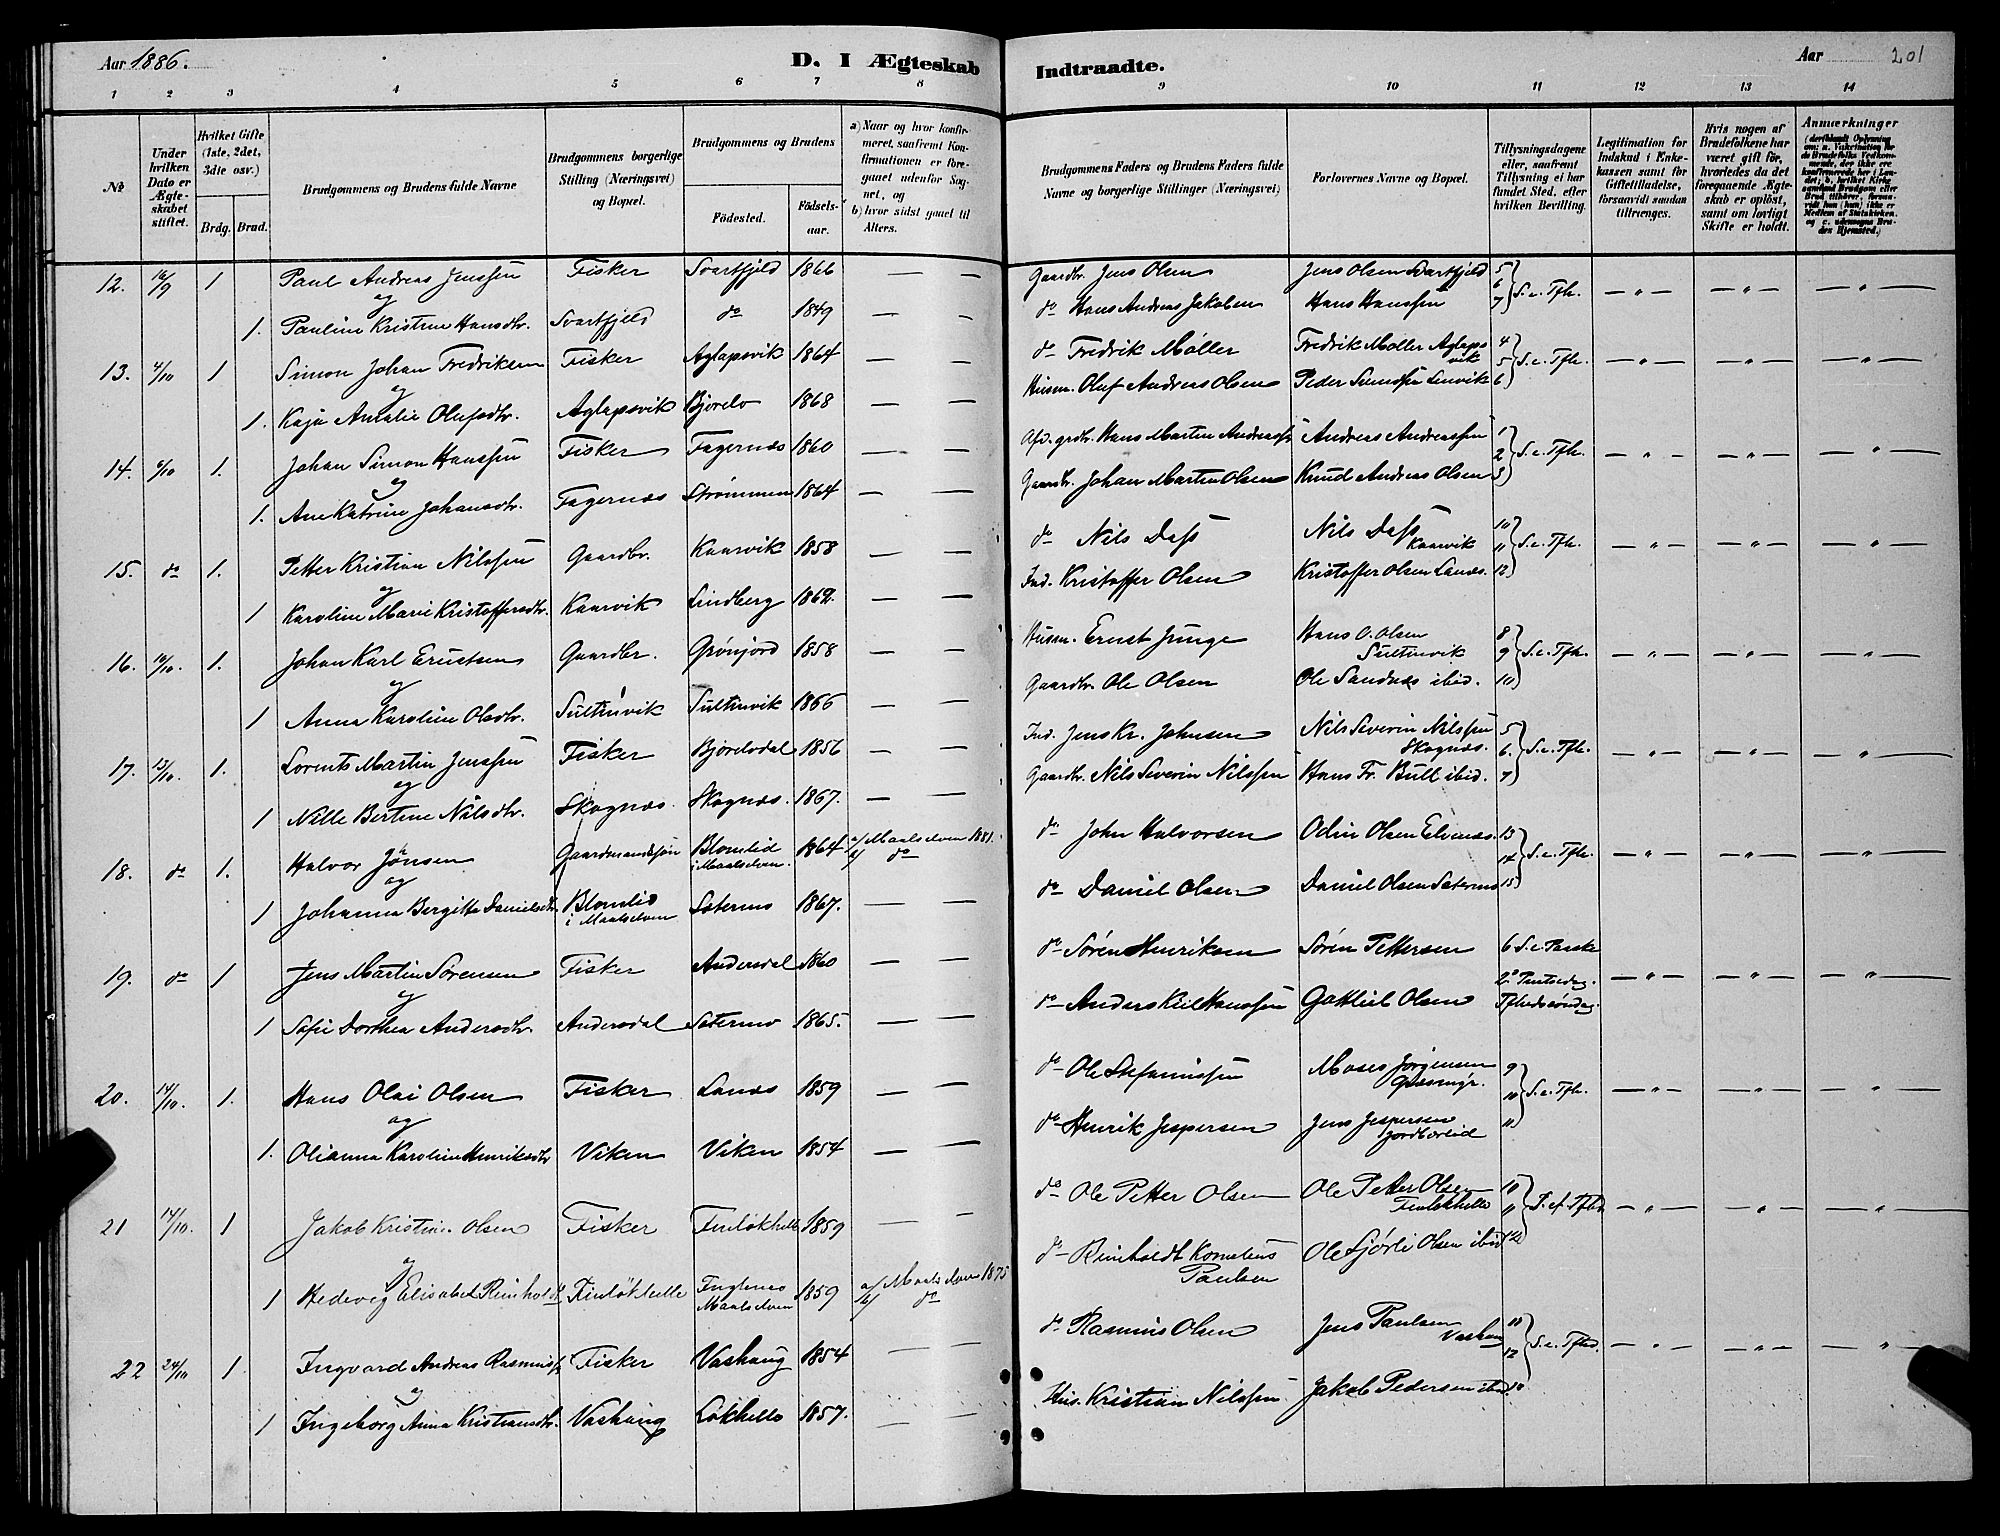 Aar 1886.
D. I Ægteskab Indtraadte.
Aar 201
1 2 3 4 5 6 7 8 9 10 11 12 13 14
№
Under hvilken Dato er Ægteskabet stiftet.
Hvilket Gifte (1ste, 2det, 3die osv.)
Brdg. Brud.
Brudgommens og Brudens fulde Navne
Brudgommens borgerlige Stilling (Næringsvei) og Bopæl.
Brudgommens og Brudens
Fødested.
Fødselsaar.
a) Naar og hvor konfirmeret, saafremt Konfirmationen er foregaaet udenfor Sognet, og
b) hvor sidst gaaet til Alters.
Brudgommens Faders og Brudens Faders fulde Navne og borgerlige Stillinger (Næringsvei)
Forlovernes Navne og Bopæl.
Tillysningsdagene eller, saafremt Tillysning ei har fundet Sted, efter hvilken Bevilling.
Legitimation for Indskud i Enkekassen samt for Giftetilladelse, forsaavidt saadan tiltrænges.
Hvis nogen af Brudefolkene har været gift før, hvorledes da det foregaaende Ægteskab er opløst, samt om lovligt Skifte er holdt.
Anmærkninger
12. 16/9 1 Paul Andreas Jenssen Fisker Svartfjeld 1866 — — Gaardbr. Jens Olsen Jens Olsen Svartfjeld 5
og 6 S. e. Tfh. — " — — " — — " —
1. Pauline Kristine Hansdtr. Svartfjeld do 1849 — — do Hans Andreas Jakobsen Hans Hanssen 7
13. 4/10 1 Simon Johan Fredriksen Fisker Aglapsvik 1864 — — do Fredrik Møller Fredrik Møller Aglapsvik 4
og 5 S. e. Tfh. — " — — " — — " —
1. Kaja Amalie Olufsdtr. Aglapsvik Bjorelv 1868 — — Husm. Oluf Andreas Olsen Peder Simonsen Lenvik 6
14. 6/10 1. Johan Simon Hanssen Fisker Fagernæs 1860 — — Afd. grdbr. Hans Martin Andreassen Andreas Andreassen 1
og 2 S. e. Tfh. — " — — " — — " —
1. Ane Katrine Johansdtr. Fagernæs Strømmen 1864 — — Gaardbr. Johan Martin Olsen Knud Andreas Olsen 3
15. do 1. Petter Kristian Nilssen Gaardbr. Kaarvik 1858 — — do Nils Dass Nils Dass Kaarvik 10
og 11 S. e. Tfh. — " — — " — — " —
1 Karoline Marie Kristoffersdtr. Kaarvik Lindberg 1862. — — Ind. Kristoffer Olsen Kristoffer Olsen Lanes. 12
16. 10/10. 1. Johan Karl Erntsen Gaardbr. Grønjord 1858 — — Husm. Ernst Junge Hans O. Olsen Sultinvik 8
og 9 S. e. Tfh. — " — — " — — " —
1 Anna Karoline Olsdtr. Sultinvik Sultinvik 1866 — — Gaardbr. Ole Olsen Ole Sandnes ibid. 10
17. 13/10. 1. Lorents Martin Jenssen Fisker Bjorelvdal 1856 — — Ind. Jens Kr. Johnsen Nils Severin Nilssen Skognæs. 5
og 6. S. e. Tfh. — " — — " — — " —
1 Nille Bertine Nilsdtr. Skognæs. Skognæs. 1867. — — Gaardbr. Nils Severin Nilssen Hans Fr. Bull ibid. 7
18. do 1. Halvor Jønsen Gaardmandssøn Blomlid i Maalselven. 1864 a/ Maalselven 1881. b/ do do John Halvorsen Odin Olsen Elvenes. 13
og 14 S. e. Tfh. — " — — " — — " —
1 Johanna Bergitte Danielsdtr. Blomlid i Maalselven Setermo 1867. — — do Daniel Olsen Daniel Olsen Setermo 15
19. do 1 Jens Martin Sørensen Fisker Andersdal 1860 — — do Søren Henriksen Søren Pettersen 6 S. e. Paaske
og 2. Pintsedag. — " — — " — — " —
1 Sofie Dorthea Andersdtr. Andersdal Setermo 1865. — — do Anders Kiil Hanssen Gottlieb Olsen Tfhedssøndag.
20. 14/10. 1. Hans Olai Olsen Fisker Lanæs 1859 — — do Ole Stefanussen Moses Jørgensen Græsmyr. 9
og 10 S. e. Tfh. — " — — " — — " —
1. Olianna Karoline Henriksdtr Viken Viken 1854 — — do Henrik Jespersen Jens Jespersen Jordbærlid 11
21 14/10. 1 Jakob Kristian Olsen Fisker Finløkhelle 1859 — — do Ole Petter Olsen Ole Petter Olsen Finløkhelle 10
og 11 S. ef. Tfhd. — " — — " — — " —
1 Hedevig Elisabet Reinholdtsdtr Finløkhelle Fuglenes Maalselven 1859 a/ Maalselven 1875 b/ do do Reinholdt Kornelius Paulsen Ole Sjørli Olsen ibid 12
22 24/10 1 Ingvard Andreas Rasmussen Fisker Vashaug 1854 — — do Rasmus Olsen Jens Paulsen Vashaug 11
og 12 S. e. Tfhd. — " — — " — — " —
1 Ingeborg Anna Kristiansdtr. Vashaug Løkhelle 1857. — — Hus. Kristian Nilssen Jakob Pedersen ibid